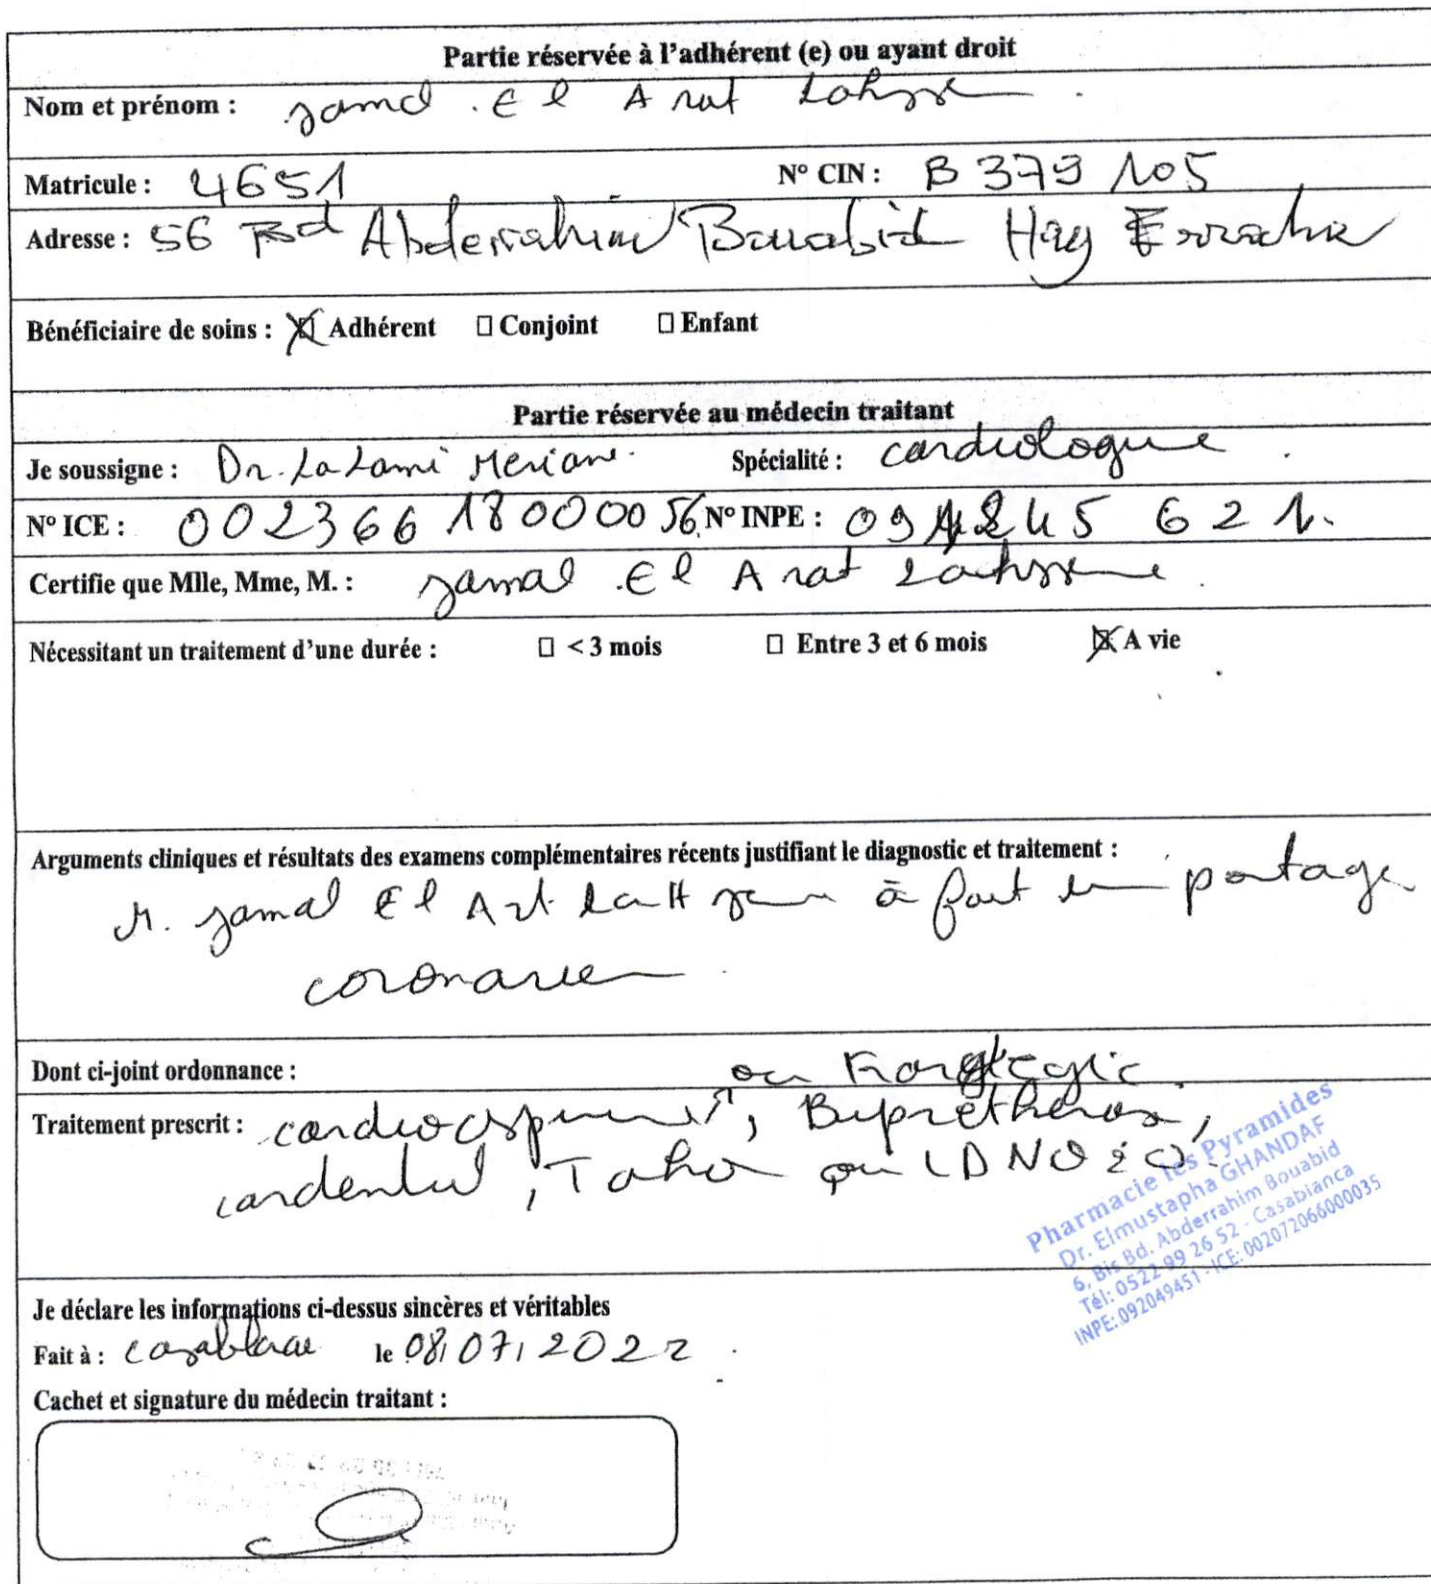 Partie réservée à l'adhérent (e) ou ayant droit
Nom et prénom : Jamal El A
Matricule : 4651 N° CIN : B 379 105
Adresse : 56 Bd Abderrahim Bouabid Hay
Bénéficiaire de soins : ☒ Adhérent ☐ Conjoint ☐ Enfant
Partie réservée au médecin traitant
Je soussigne : Dr. Lalami Meriame Spécialité : cardiologue
N° ICE : 002366180000056 N° INPE : 091245 621
Certifie que Mlle, Mme, M. : Jamal El A
Nécessitant un traitement d'une durée : ☐ < 3 mois ☐ Entre 3 et 6 mois ☒ A vie
Arguments cliniques et résultats des examens complémentaires récents justifiant le diagnostic et traitement :
M. Jamal El à fait un pontage
coronarien
Dont ci-joint ordonnance :
ou
Traitement prescrit : cardioaspirine,
cardental, Tahor ou
Pharmacie les Pyramides
Dr. Elmustapha GHANDAF
6, Bis Bd. Abderrahim Bouabid
Tél: 0522 99 26 52 - Casablanca
INPE: 092049451 - ICE: 002072066000035
Je déclare les informations ci-dessus sincères et véritables
Fait à : Casablanca le 08/07/2022
Cachet et signature du médecin traitant :